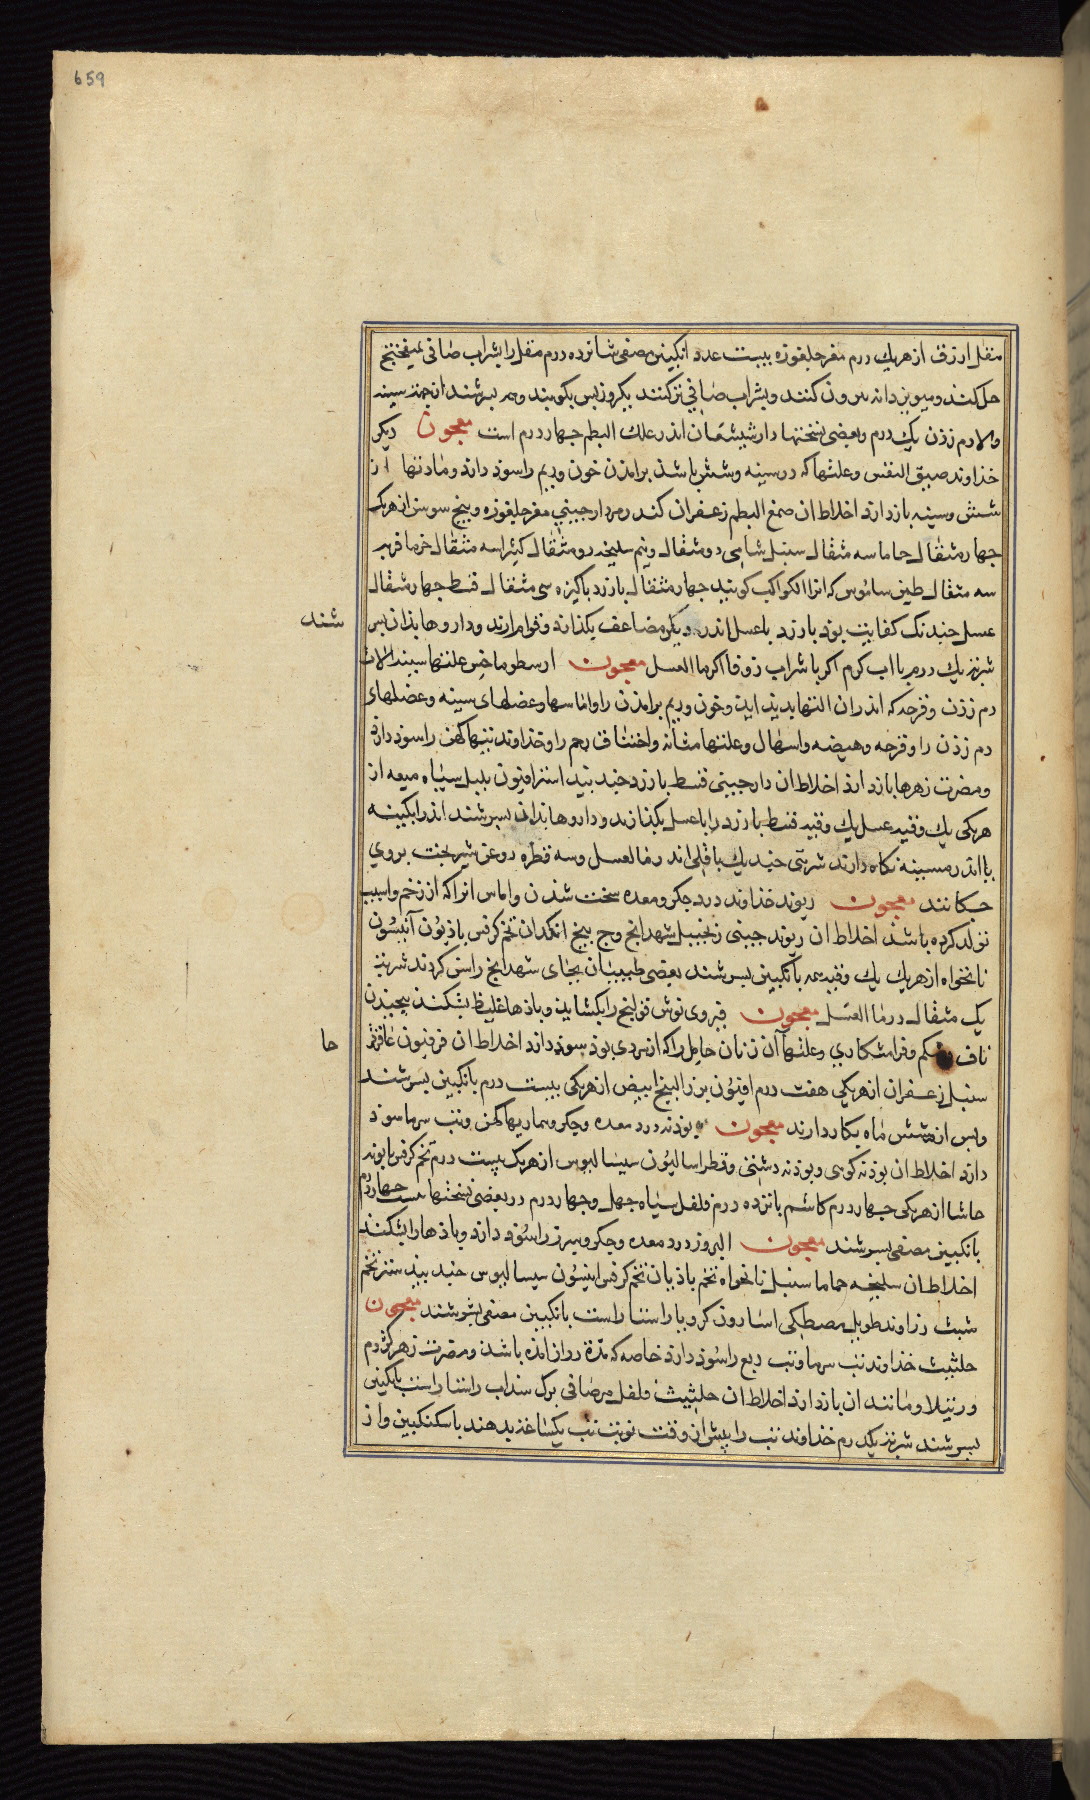 659
مقل ازرق از هریك درم مغز جلغوزه بیست عدد انگبین مصفی شانزده درم مقل را بشراب صافی
حل کنند و میویز دانه بیرون کنند و بشراب صافی تر کنند یکروز پس بکوبند و همه بسرشند
دم زدن یك درم و بعضی نسختها دارشیشعان اندر علك البطم چهار درم است معجون دیکر
خذاوند ضیق النفس و علتهاکه در سینه و شش باشد برامدن خون و ریم را سوذ دارد و مادتها از
شش و سینه بازدارد اخلاط ان صمغ البطم زعفران کندر مر دارچینی مغز جلغوزه و بیخ سوسن از هریك
چهار مثقال حاما سه مثقال سنبل شامی دو مثقال و نیم سلیخه دو مثقال کثیرا سه مثقال خرما فربه
سه مثقال طین ساموس که انرا الکواکب کویند چهار مثقال بارزد پاکیزه سی مثقال قسط چهار مثقال
عسل چندنك کفایت بود بارزد با عسل اندر دیکر مضاعف بکذازند و بقوام ارند و داروها بذان پس
شند
شربت یك درم با اب کرم اکر با شراب زوفا اکر ما العسل معجون ارسطوماخس علتهاسینه و الات
دم زدن و قرحه که اندران التها پدید اید و خون و ریم برامدن را و اماسها و عضلهای سینه و عضلهای
دم زدن را و قرحه و هیضه و اسهال و علتها مثانه و اختناق رحم را و خذاوند تبهاکهن را سوذ دارد
و مضرت زهرها بازدارد اخلاط ان دارچینی قسط بارزد جند بید استر افیون پلپل سیاه میعه از
هریکی یك وقیه عسل یك وقیه قسط بارزد را با عسل بکذازند و داروها بذان بسرشند اندر ابکینه
یا اندر مسینه نکاه دارند شربتی چند یك باقلی اندر ما العسل و سه قطره روغن شیربخت بروی
چکانند معجون ریوند خذاوند درد جکر و معده سخت شذن و اماس انرا که از زخم و اسیب
تولد کرده باشذ اخلاط ان ریوند چینی زنجبیل شهدانج وج بیخ انکدان تخم کرفس باذیون آنیسون
نانخواه از هریك یك وقیه همه بانکبین بسرشند بعضی طبیبان بجای شهدانج راسن کردند شربت
یك مثقال در ما العسل معجون قیروی نوش قولنج را بکشاید و باذها غلیظ بشکند پیچیدن
ناف و شکم و فرامشکاری و علتها آن زنان حامل راکه از سردی بوذ سوذ دارد اخلاط ان فرفیون عاقرقر
حا
سنبل زعفران از هریکی هفت درم افیون بزر البنج ابیض از هریکی بیست درم بانکبین بسرشند
و پس از شش ماه بکار دارند معجون بوذنه درد معده و جکر و بیماریهاکهن و تب سرما سوذ
دارد اخلاط ان بوذنه کوهی و بوذنه دشتی و فطراسالیون سیسالیوس از هریك بیست درم تخم کرفس بابونه
حاشا از هریکی چهار درم کاشم پانزده درم فلفل سیاه چهل و چهار درم در بعضی نسختها بیست چهار درم
بانکبین مصفی بسرشند معجون البروز درد معده و جکر و سپرز را سوذ دارد و باذها را بشکند
اخلاط ان سلیخه حماما سنبل نانخواه تخم باذیان تخم کرفس انیسون سیسالیوس جند بید ستر تخم
شبث زراوند طویل مصطکی اسارون کرویا راستا راست بانکبین مصفی بسرشند معجون
حلتیت خذاوند تب سرما و تب ربع را سوذ دارد خاصه که مدة دراز امذه باشذ و مضرت زهر کژدم
و رتیلا و مانند ان بازدارد اخلاط ان حلتیث فلفل مرصافی برك سذاب راستا راست بانکبین
بسرشند شربت یکدرم خذاوند تب را پیش از وقت نوبت تب یکساعة بدهند با سکنکبین و از